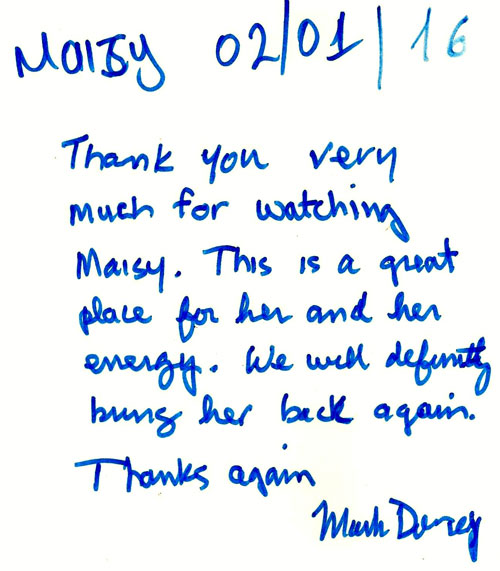 Maisy 02/01/16
Thank you very
much for watching
Maisy. This is a great
place for her and her
energy. We will definitly
bring her back again.
Thanks again
Mark